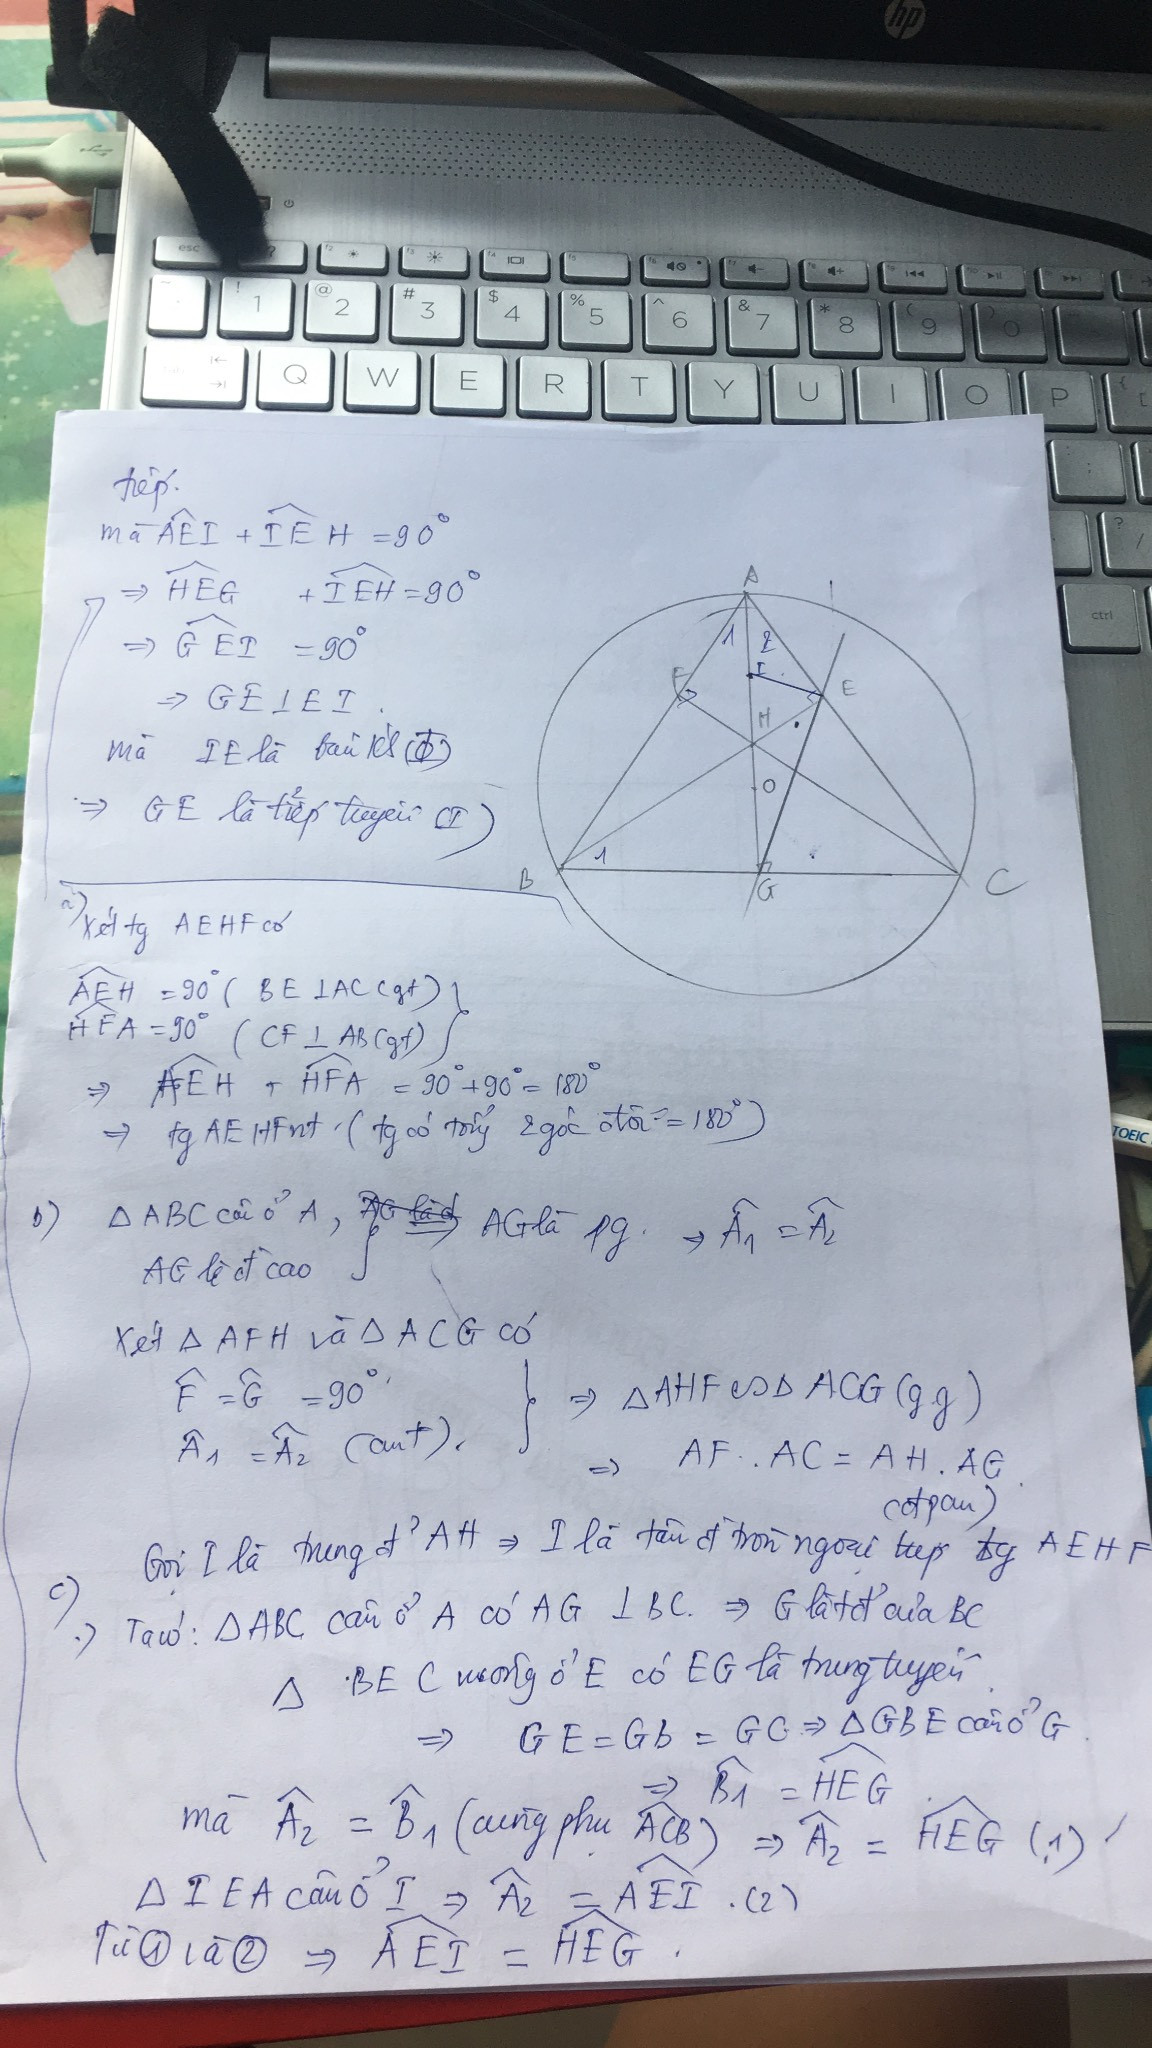 hp
esc
! 1
@ 2
# 3
$ 4
% 5
^ 6
& 7
* 8
( 9
) 0
Q W E R T Y U I O P
ctrl
TOEIC
tiếp.
mà AEI + IEH = 90°
⇒ HEG + IEH = 90°
⇒ GEI = 90°
⇒ GE ⊥ EI.
mà IE là bán k (I)
⇒ GE là tiếp tuyến (I)
A
1 2
I
F
E
H
O
B
1
G
C
a) Xét tg AEHF có
AEH = 90° (BE ⊥ AC (gt)
HFA = 90° (CF ⊥ AB (gt)
⇒ AEH + HFA = 90° + 90° = 180°
⇒ tg AEHF nt. (tg có tổng 2 góc đối = 180°)
b) Δ ABC cân ở A,
⇒ AG là pg. ⇒ A1 = A2
AG là đ cao
Xét Δ AFH và Δ ACG có
F = G = 90°
A1 = A2 (cmt).
⇒ Δ AHF ∽ Δ ACG (g g)
⇒ AF . AC = AH . AG
(đpcm)
Gọi I là trung đ' AH ⇒ I là tâm đ tròn ngoại tiếp tg AEHF
c)
Ta có: Δ ABC cân ở A có AG ⊥ BC. ⇒ G là tđ' của BC
Δ BEC vuông ở E có EG là trung tuyến
⇒ GE = GB = GC ⇒ Δ GBE cân ở G
⇒ B1 = HEG
mà A2 = B1 (cùng phụ ACB) ⇒ A2 = HEG (1)
Δ IEA cân ở I ⇒ A2 = AEI. (2)
Từ ① và ② ⇒ AEI = HEG.